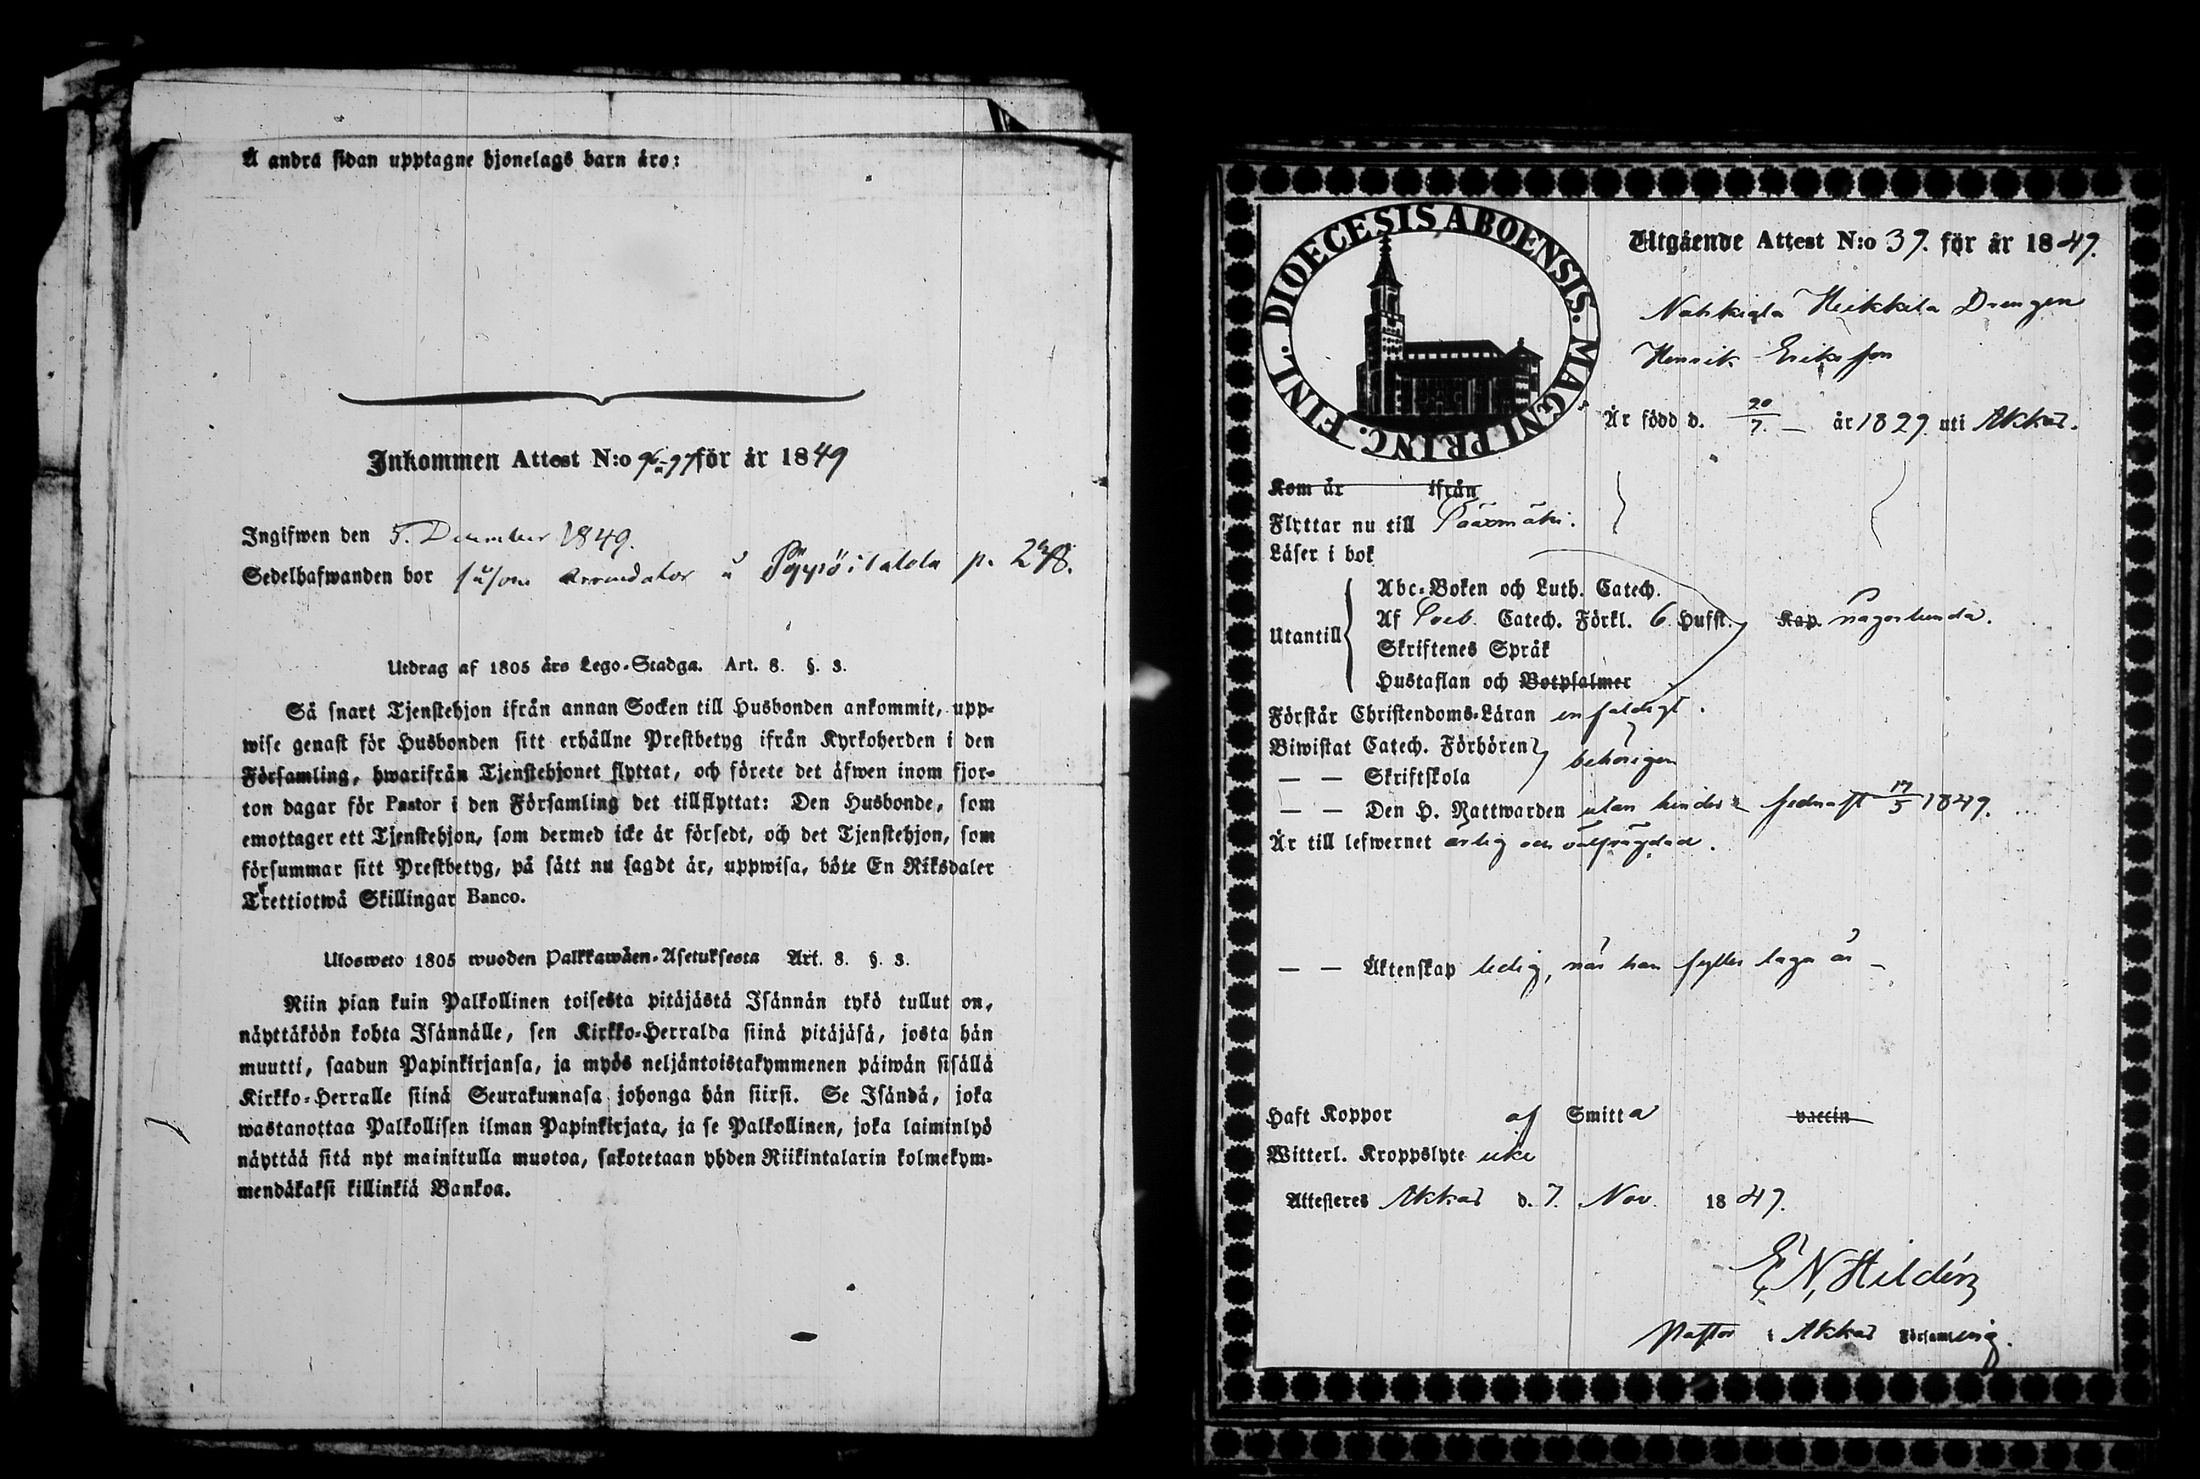 Å andra sidan upptagne hjonelags barn äro:
Inkommen Attest N:o för år 1849
Ingifwen den 5. December 1849.
Sedelhafwanden bor såsom arrendator å p. 248.
Utdrag af 1805 års Lego-Stadga. Art. 8. §. 3.
Så snart Tjenstehjon ifrån annan Socken till Husbonden ankommit, upp-
wise genast för Husbonden sitt erhållne Prestbetyg ifrån Kyrkoherden i den
Församling, hwarifrån Tjenstehjonet flyttat, och förete det äfwen inom fjor-
ton dagar för Pastor i den Församling det tillflyttat: Den Husbonde, som
emottager ett Tjenstehjon, som dermed icke är försedt, och det Tjenstehjon, som
försummar sitt Prestbetyg, på sätt nu sagdt är, uppwisa, böte En Riksdaler
Trettiotwå Skillingar Banco.
Ulosweto 1805 wuoden Palkkawäen-Asetuksesta Art. 8. §. 3.
Niin pian kuin Palkollinen toisesta pitäjästä Isännän tykö tullut on,
näyttäköön kohta Isännälle, sen Kirkko-Herralda siinä pitäjäsä, josta hän
muutti, saadun Papinkirjansa, ja myös neljäntoistakymmenen päiwän sisällä
Kirkko-Herralle siinä Seurakunnasa johonga hän siirsi. Se Isändä, joka
wastanottaa Palkollisen ilman Papinkirjata, ja se Palkollinen, joka laiminlyö
näyttää sitä nyt mainitulla muotoa, sakotetaan yhden Riikintalarin kolmekym-
mendäkaksi killinkiä Bankoa.
DIOECESIS ABOENSIS. MAGNI PRINC. FINL.
Utgående Attest N:o 39. för år 1849.
Nahkiala Heikkila Drengen
Henrik Eriksson
Är född d. 20/7. år 1829 uti Akkas.
Kom år ifrån
Flyttar nu till Sääxmäki.
Läser i bok
Utantill
Abc-Boken och Luth. Catech.
Af Sveb. Catech. Förkl. 6 Hufst. Kap någorlunda.
Skriftenes Språk
Hustaflan och Botpsalmer
Förstår Christendoms-Läran enfaldigt.
Biwistat Catech. Förhören behörigen
— — Skriftskola
— — Den H. Nattwarden utan hinder sednast 17/5 1849.
Är till lefwernet ärlig och välfrägdad.
— — Äktenskap ledig, när han fyller laga år
Haft Koppor af Smitta vaccin
Witterl. Kroppslyte icke
Attesteres Akkas d. 7. Nov. 1849.
E. N. Hildén
Pastor i Akkas Församling.